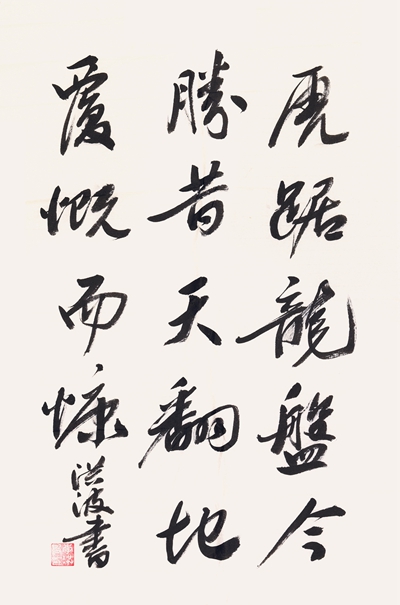 虎踞龍盤今
勝昔天翻地
覆慨而慷
洪波書